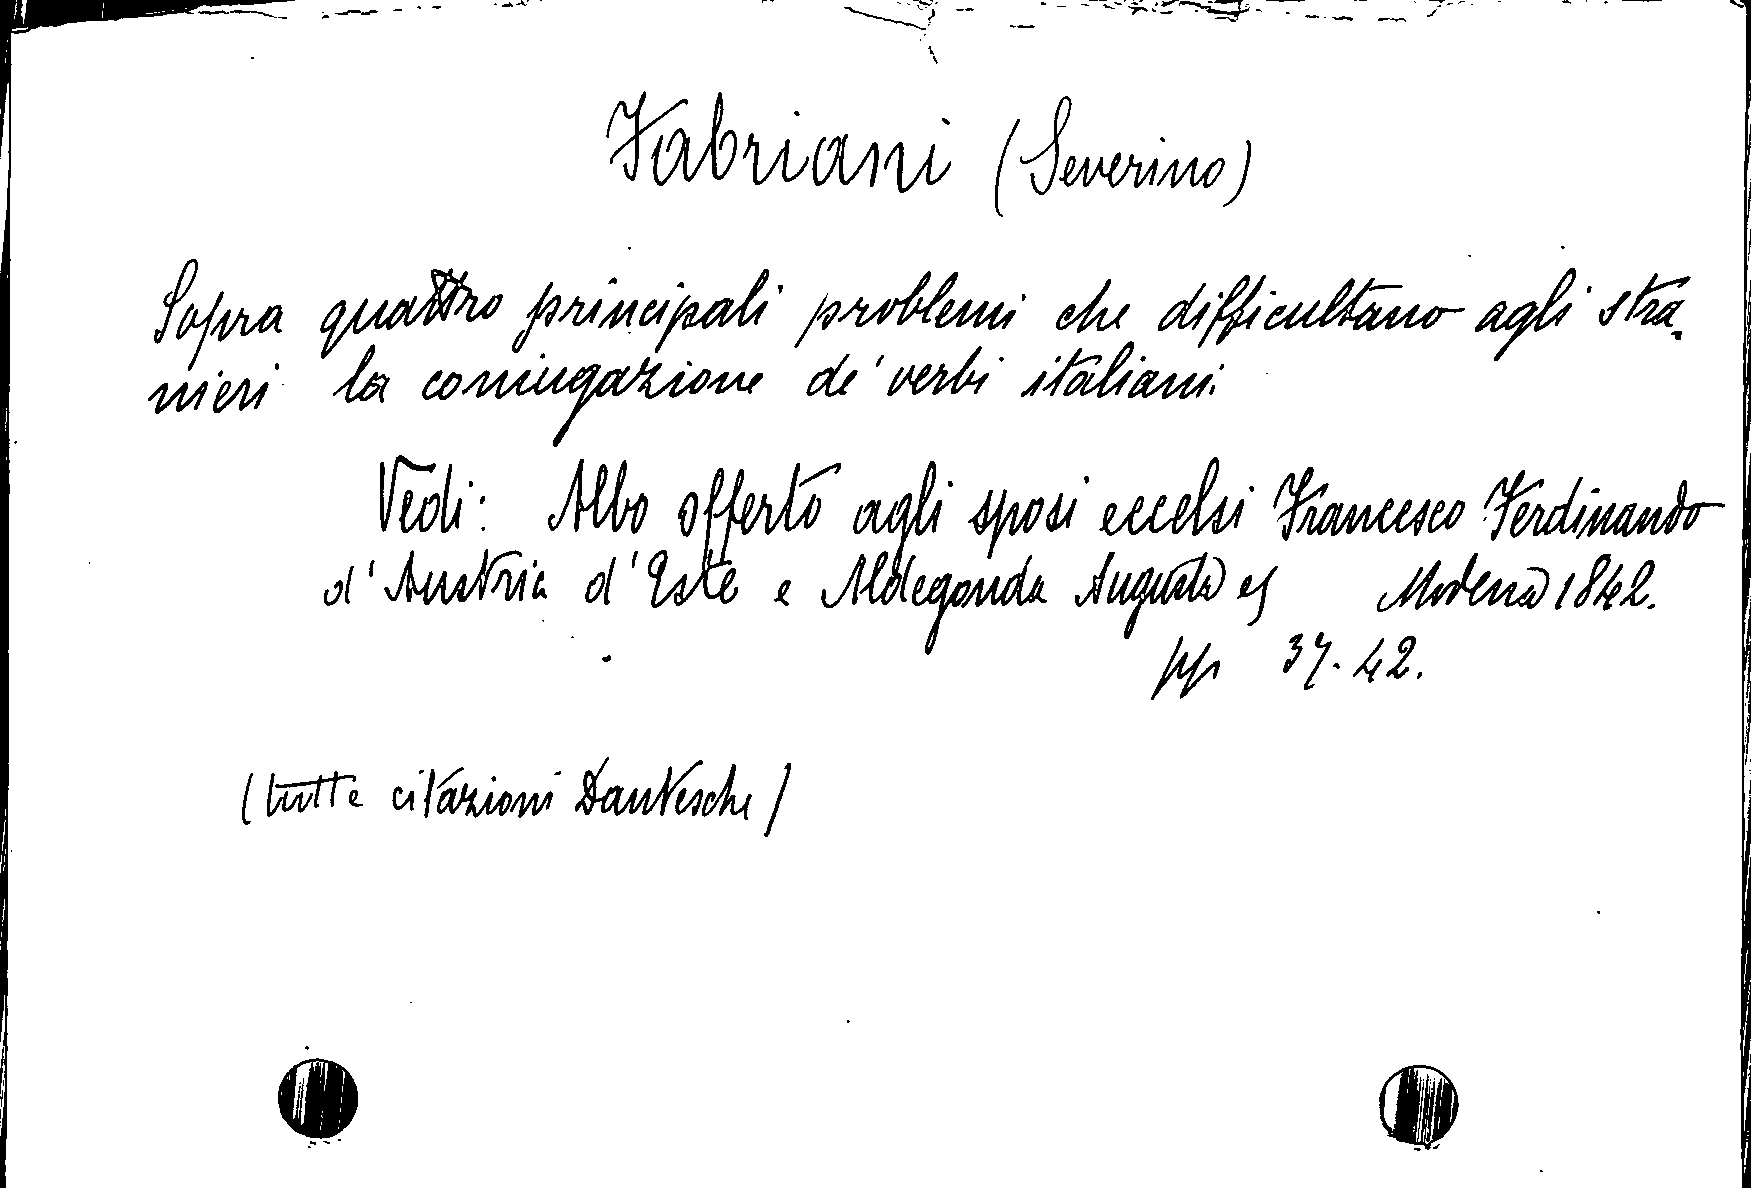 Fabriani (Severino)
Sopra quattro principali problemi che difficultano agli stra-
nieri la coniugazione de' verbi italiani.
Vedi: Albo offerto agli sposi eccelsi Francesco Ferdinando
d'Austria d'Este e Aldegonda Augusta es Modena 1842.
pp 37-42.
(tutte citazioni Dantesche)